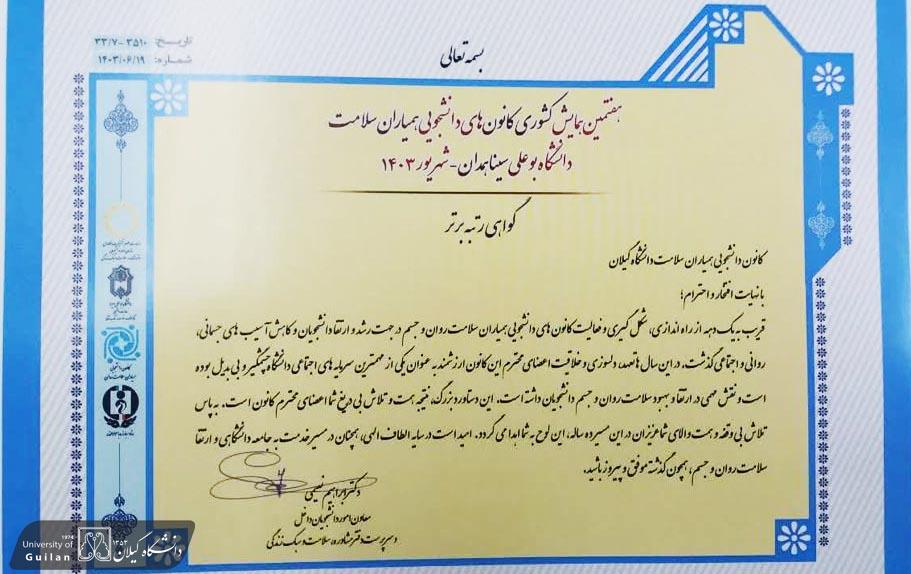 بسمه تعالی
تاریخ: ۳۵۱۰-۳۳/۷
شماره: ۱۴۰۳/۰۶/۱۹
هفتمین همایش کشوری کانون های دانشجویی همیاران سلامت
دانشگاه بوعلی سینا همدان - شهریور ۱۴۰۳
گواهی رتبه برتر
کانون دانشجویی همیاران سلامت دانشگاه گیلان
با نهایت افتخار و احترام؛
قریب به یک دهه از راه اندازی، شکل گیری و فعالیت کانون های دانشجویی همیاران سلامت روان و جسم در جهت رشد و ارتقا دانشجویان و کاهش آسیب های جسمانی،
روانی و اجتماعی گذشت. در این سال ها تعهد، دلسوزی و خلاقیت اعضای محترم این کانون ارزشمند به عنوان یکی از مهمترین سرمایه های اجتماعی دانشگاه چشمگیر و بی بدیل بوده
است و نقش مهمی در ارتقا و بهبود سلامت روان و جسم دانشجویان داشته است. این دستاورد بزرگ، نتیجه همت و تلاش بی دریغ شما اعضای محترم کانون است. به پاس
تلاش بی وقفه و همت والای شما عزیزان در این مسیر ده ساله، این لوح به شما اهدا می گردد. امید است در سایه الطاف الهی، همچنان در مسیر خدمت به جامعه دانشگاهی و ارتقا
سلامت روان و جسم، همچون گذشته موفق و پیروز باشید.
دکتر ابراهیم نعیمی
معاون امور دانشجویان داخل
و سرپرست دفتر مشاوره، سلامت و سبک زندگی
University of Guilan
1974
۱۳۵۳
دانشگاه گیلان